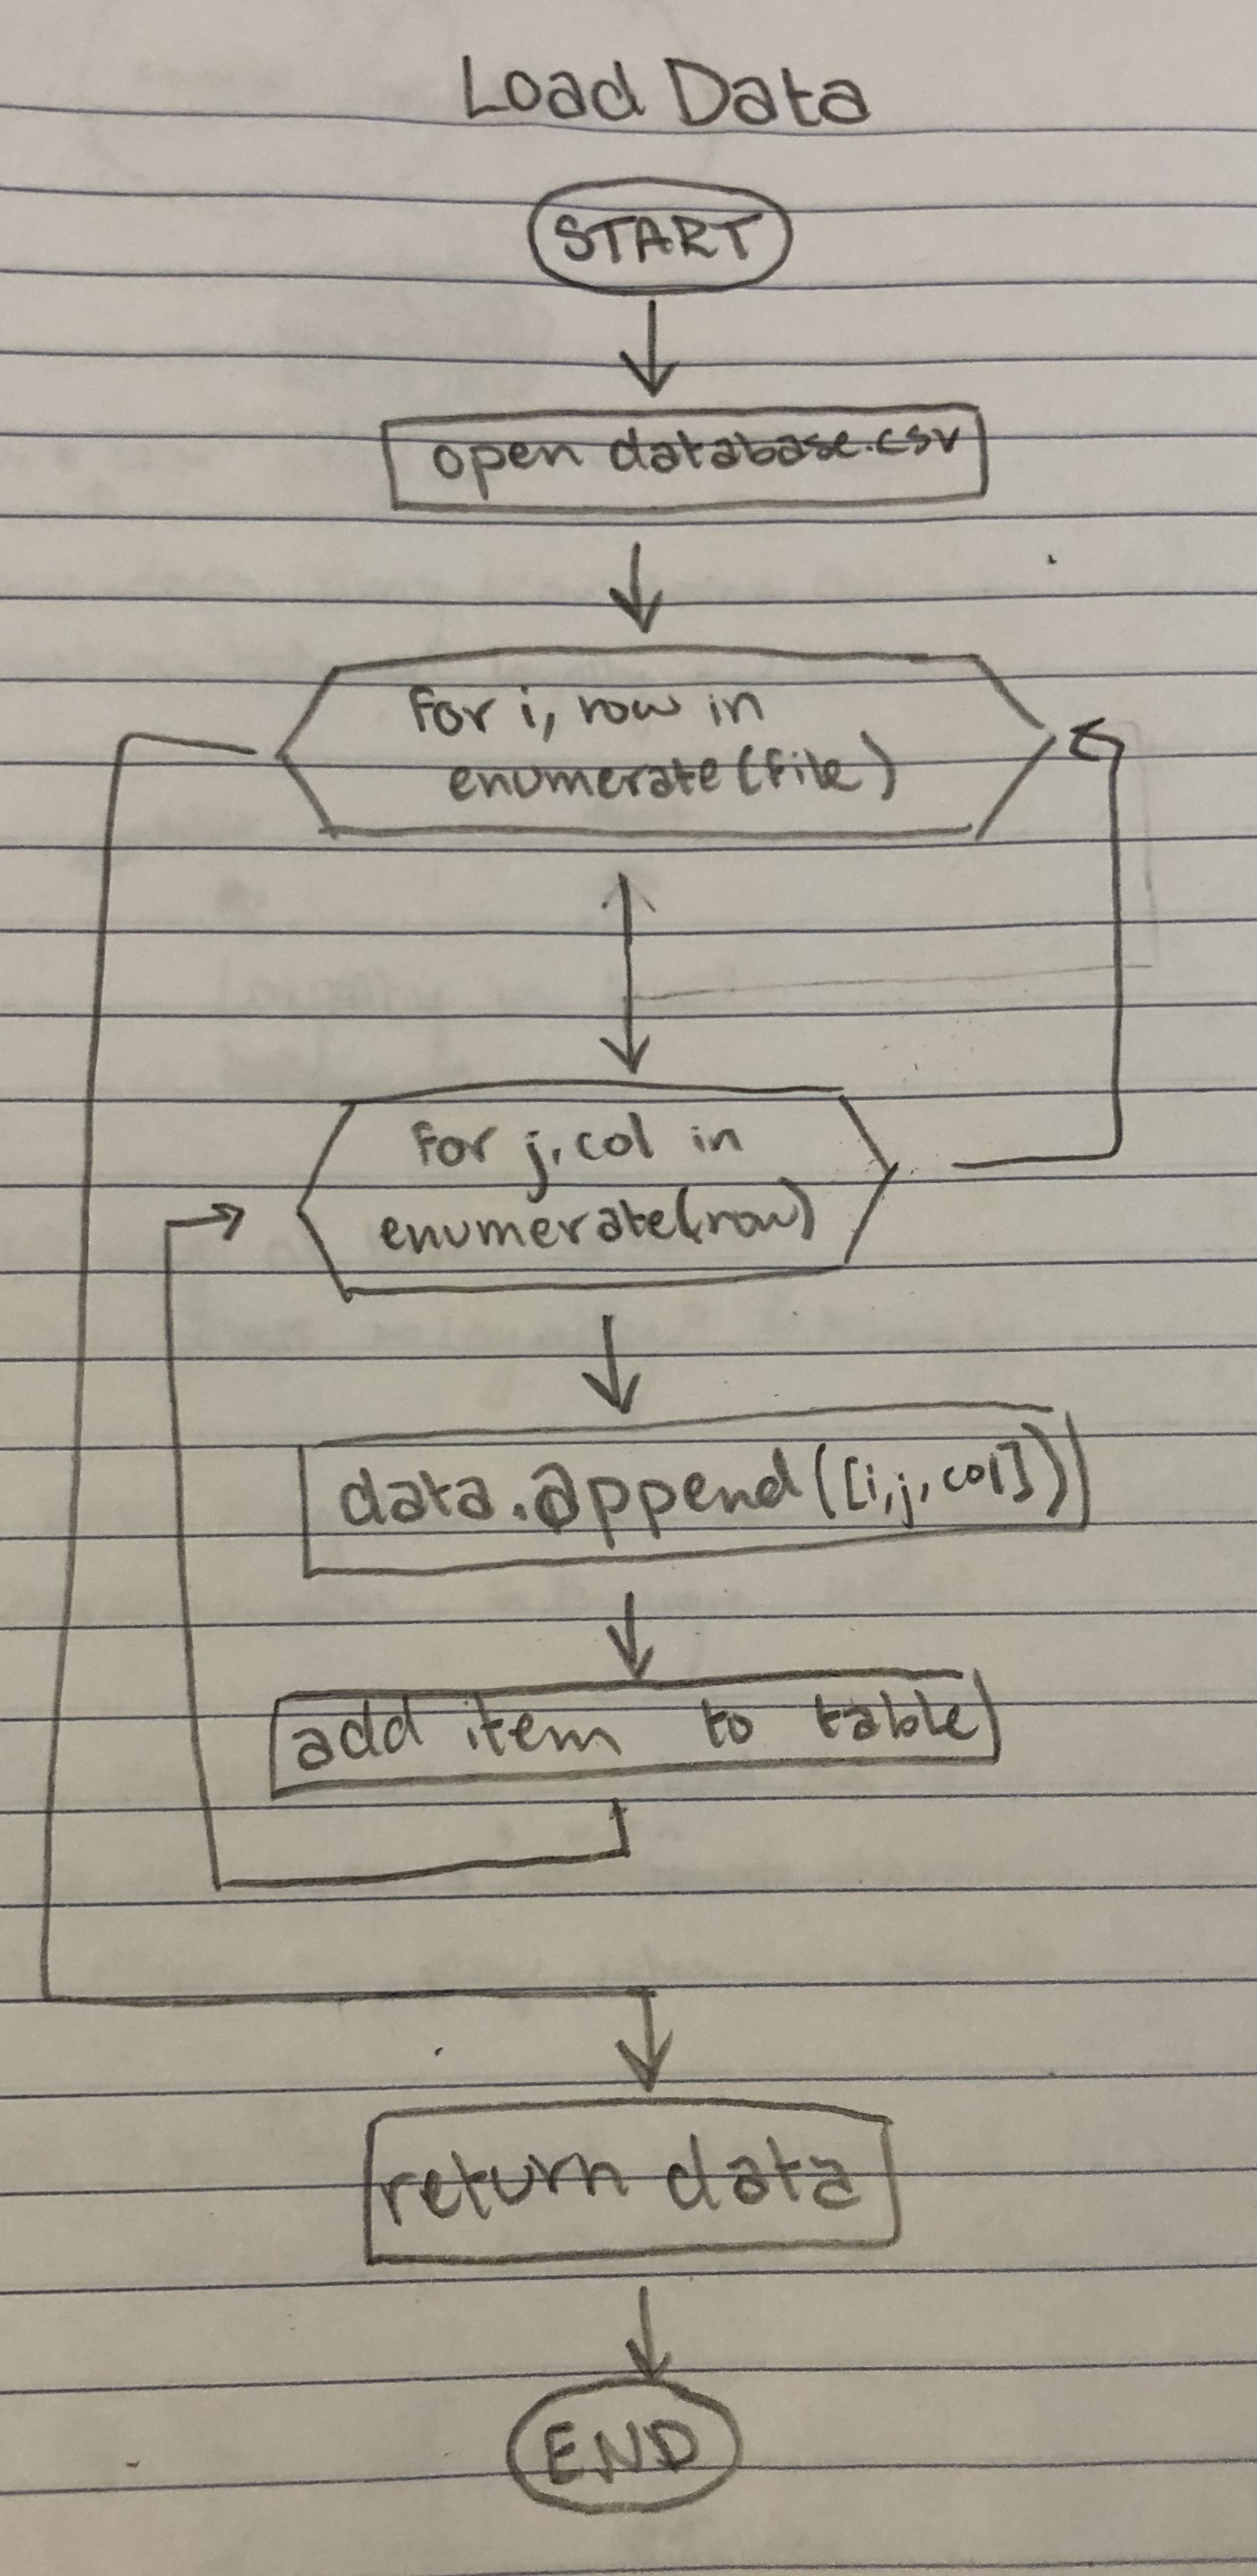 Load Data
START
open database.csv
for i, row in
enumerate(file)
for j, col in
enumerate(row)
data.append([i,j,col])
add item to table
return data
END